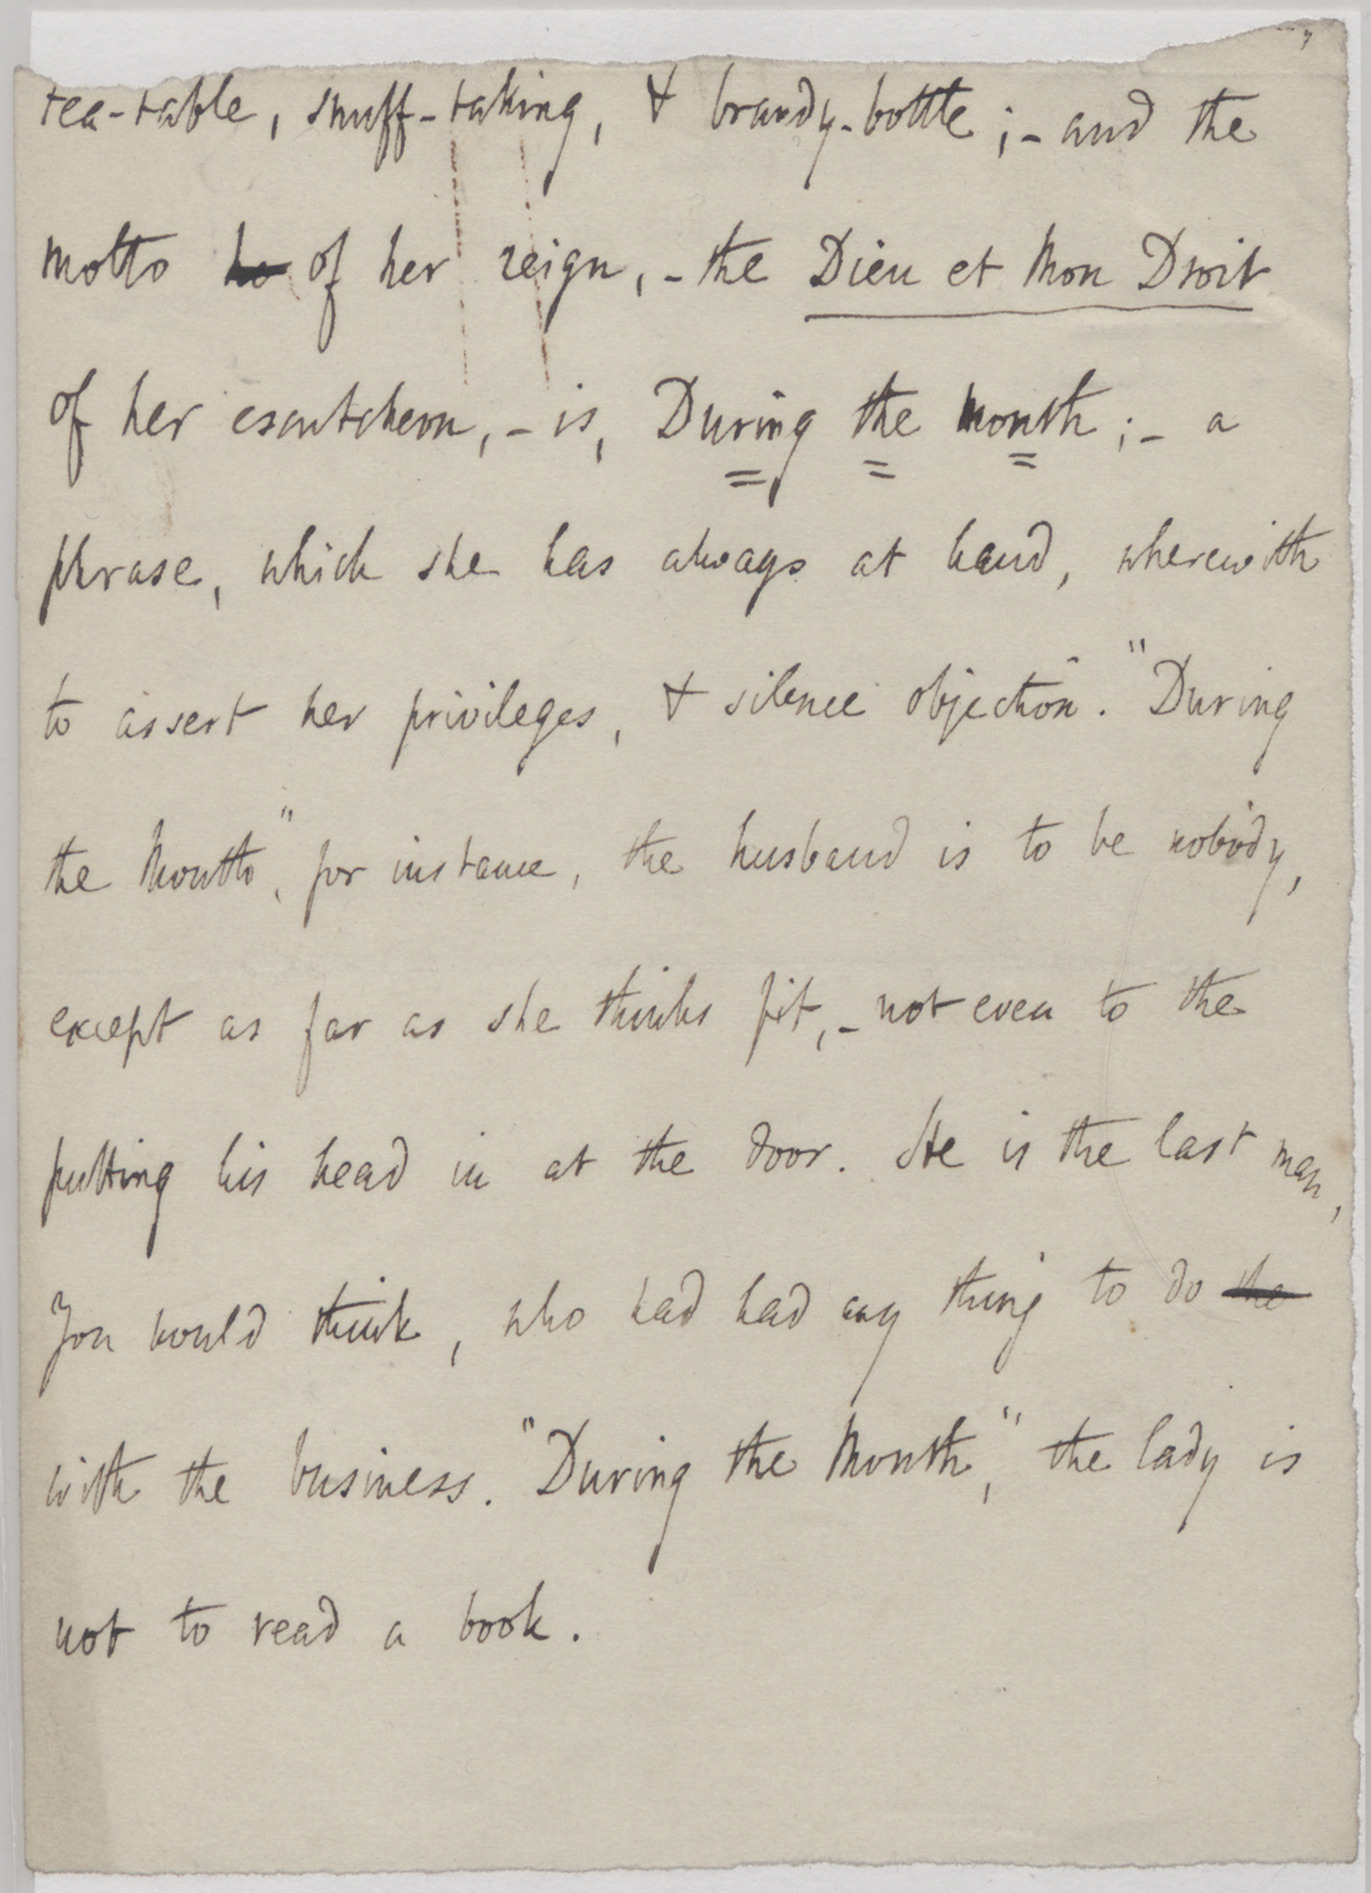 tea-table, snuff-taking, & brandy-bottle ;- and the
motto ho of her reign, - the Dieu et Mon Droit
of her escutcheon, - is, During the month ; - a
phrase, which she has always at hand, wherewith
to assert her privileges, & silence objection. "During
the Month", for instance, the husband is to be nobody,
except as far as she thinks fit, - not even to the
putting his head in at the door. He is the last man,
you would think, who had had any thing to do the
with the business. "During the Month," the lady is
not to read a book.